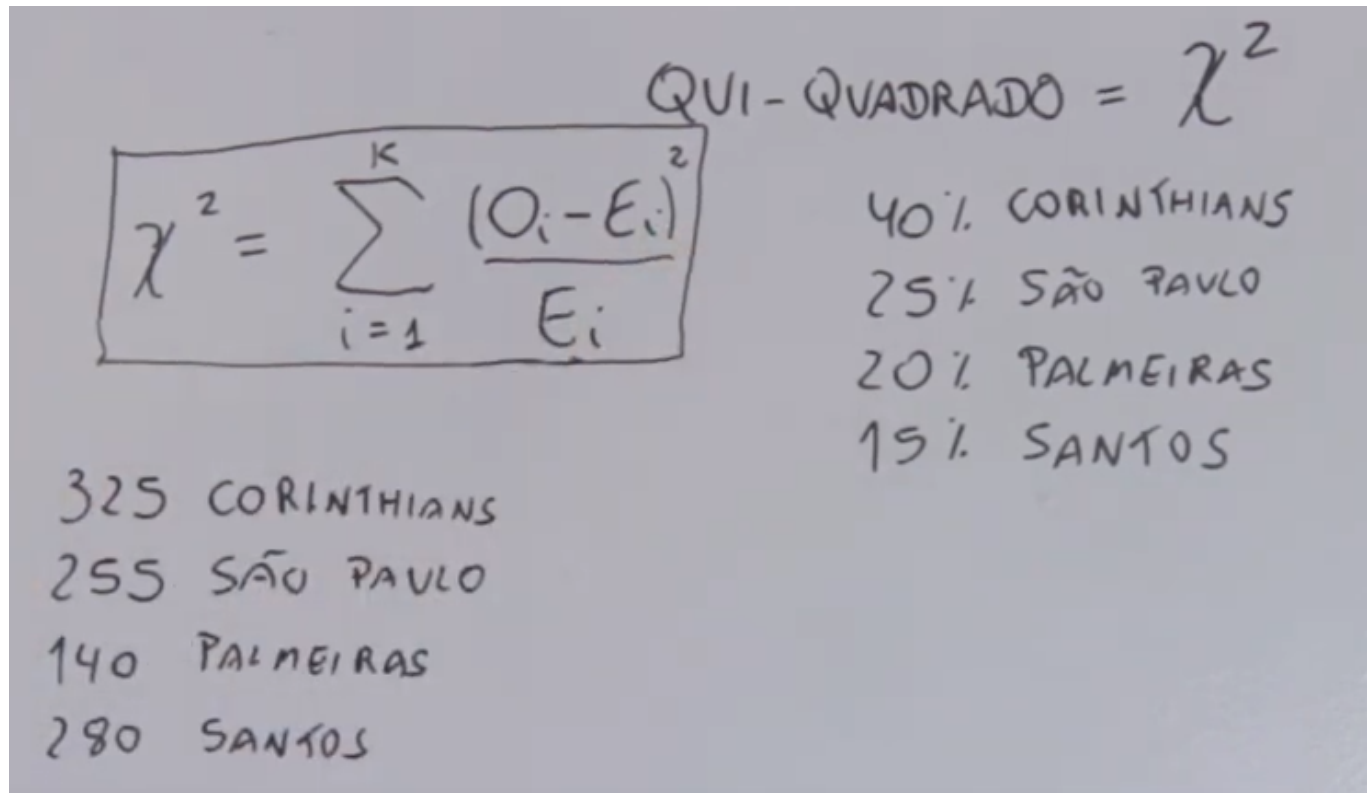 QUI-QUADRADO = χ²
χ² = ∑ᵢ₌₁ᴷ (Oᵢ-Eᵢ)² / Eᵢ
40% CORINTHIANS
25% SÃO PAULO
20% PALMEIRAS
15% SANTOS
325 CORINTHIANS
255 SÃO PAULO
140 PALMEIRAS
280 SANTOS